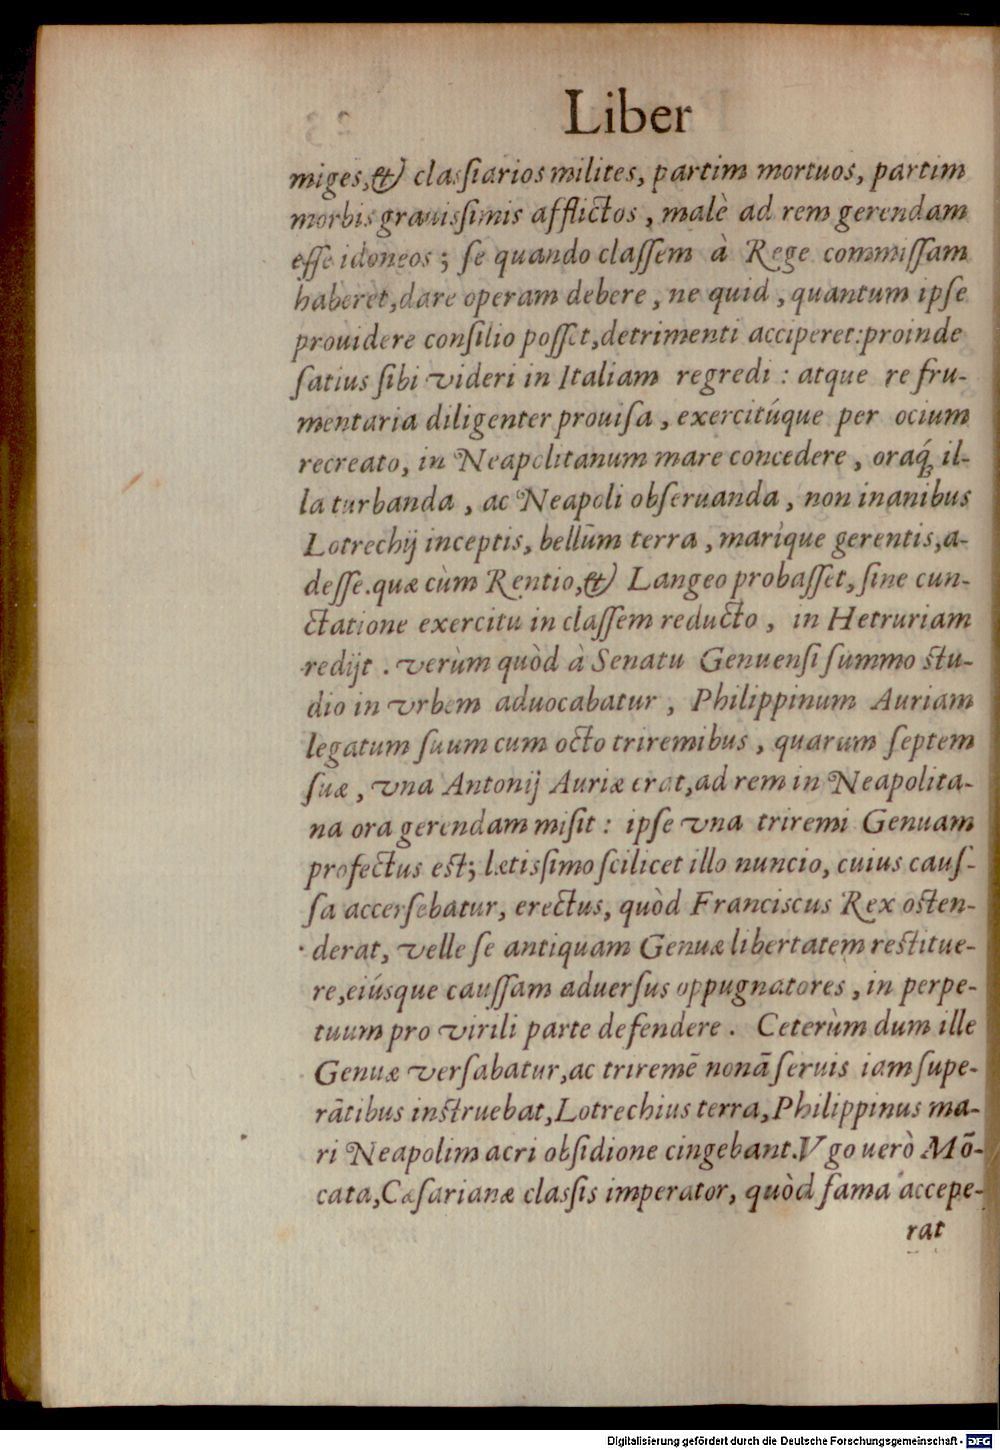 Liber
miges, & classiarios milites, partim mortuos, partim
morbis grauissimis afflictos, malè ad rem gerendam
esse idoneos; se quando classem à Rege commissam
haberet, dare operam debere, ne quid, quantum ipse
prouidere consilio posset, detrimenti acciperet: proinde
satius sibi videri in Italiam regredi: atque re fru-
mentaria diligenter prouisa, exercitúque per ocium
recreato, in Neapolitanum mare concedere, oraq́ꝫ il-
la turbanda, ac Neapoli obseruanda, non inanibus
Lotrechij inceptis, bellum terra, maríque gerentis, a-
desse. quæ cùm Rentio, & Langeo probasset, sine cun-
ctatione exercitu in classem reducto, in Hetruriam
redijt. verùm quòd à Senatu Genuensi summo stu-
dio in vrbem aduocabatur, Philippinum Auriam
legatum suum cum octo triremibus, quarum septem
suæ, vna Antonij Auriæ erat, ad rem in Neapolita-
na ora gerendam misit: ipse vna triremi Genuam
profectus est; lætissimo scilicet illo nuncio, cuius caus-
sa accersebatur, erectus, quòd Franciscus Rex osten-
derat, velle se antiquam Genuæ libertatem restitue-
re, eiúsque caussam aduersus oppugnatores, in perpe-
tuum pro virili parte defendere. Ceterùm dum ille
Genuæ versabatur, ac triremē nonā seruis iam supe-
rātibus instruebat, Lotrechius terra, Philippinus ma-
ri Neapolim acri obsidione cingebant. Vgo uerò Mō-
cata, Cæsarianæ classis imperator, quòd fama accepe-
rat
Digitalisierung gefördert durch die Deutsche Forschungsgemeinschaft - DFG